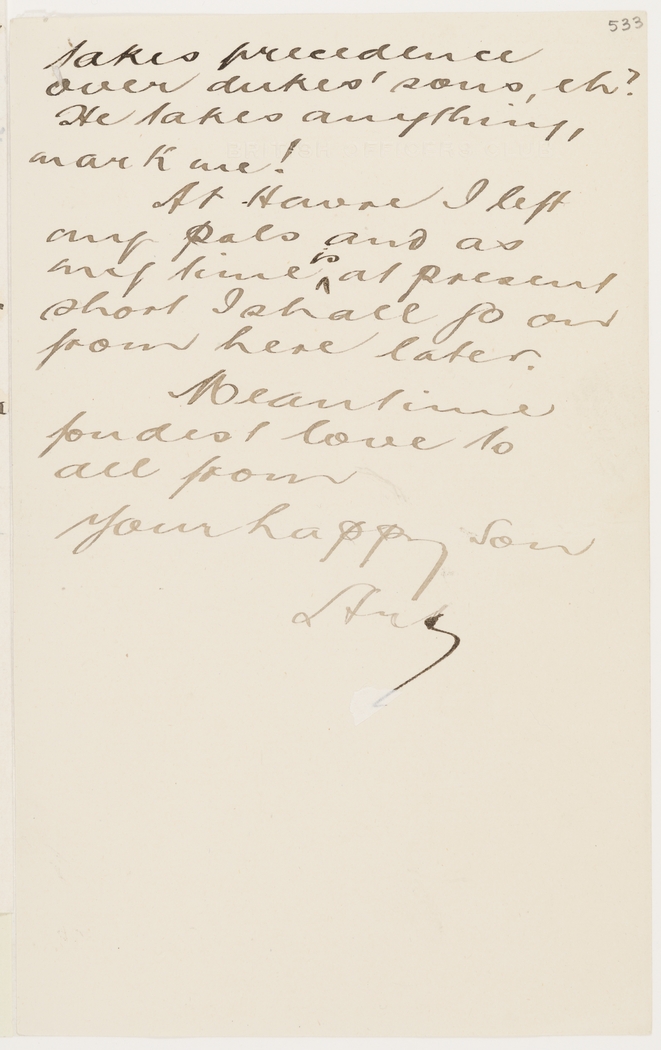 533
takes precedence
over dukes' sons, eh?
He takes anything,
mark me!
At Havre I left
my pals and as
my time is at present
short I shall go on
from here later.
Meantime
fondest love to
all from
Your happy son